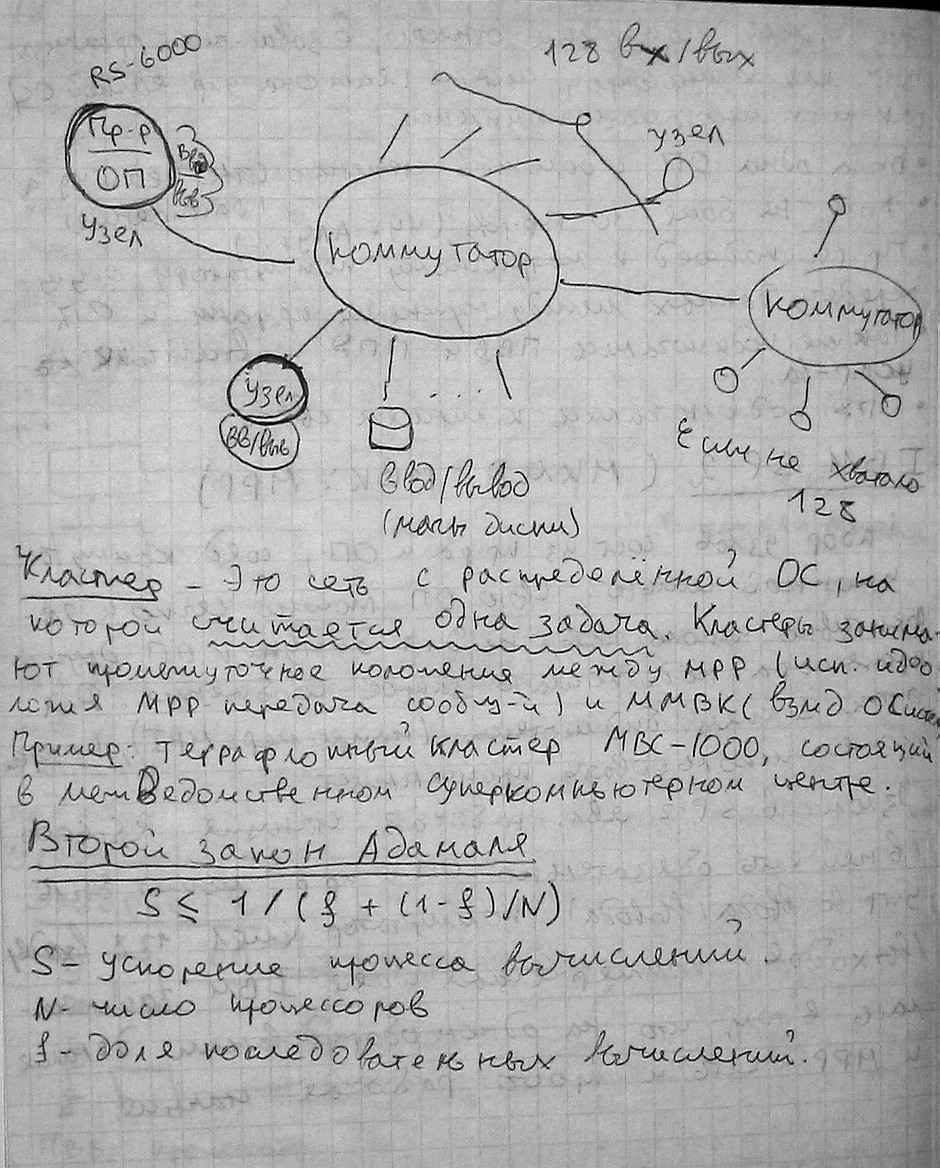 RS-6000
128 вх/вых
Пр-р
ОП
Вв
Выв
Узел
узел
Коммутатор
Коммутатор
Узел
ВВ/Выв
. . . .
Ввод/вывод
(маг. диски)
Если не хватало
128
Кластер - Это сеть с распределённой ОС, на
которой считается одна задача. Кластеры занима-
ют промежуточное положения между MPP (исп. идео
логия MPP передача сообщ-й) и ММВК (взмд ОСистем
Пример: Террафлопный кластер МВС-1000, состоящий
в межВедомственном суперкомпьютерном центре.
Второй закон Адамаля
S ≤ 1 / (f + (1-f)/N)
S - Ускорение процесса вычислений.
N - число процессоров
f - доля последовательных вычислений.